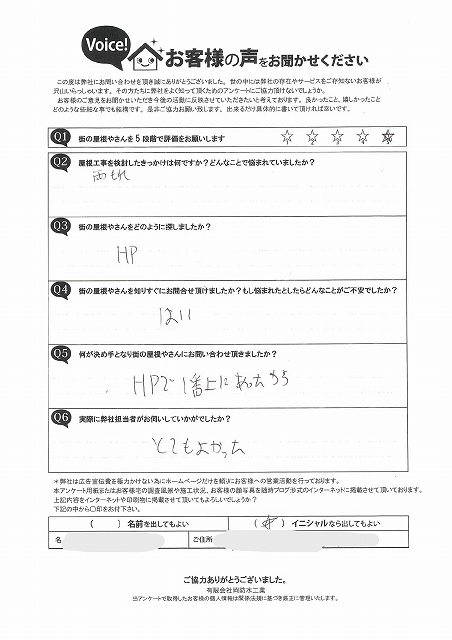 Voice!
お客様の声をお聞かせください
この度は弊社にお問い合わせを頂き誠にありがとうございました。世の中には弊社の存在やサービスをご存知ないお客様が
沢山いらっしゃいます。その方たちに弊社をよく知って頂くためのアンケートにご協力頂けないでしょうか。
お客様のご意見をお聞かせいただき今後の活動に反映させていただきたいと考えております。良かったこと、嬉しかったこと
どのような些細な事でも結構です。是非ご協力お願い致します。出来るだけ具体的に書いて頂ければ幸いです。
Q1 街の屋根やさんを5段階で評価をお願いします ☆ ☆ ☆ ☆ ★
Q2 屋根工事を検討したきっかけは何ですか?どんなことで悩まれていましたか?
雨もれ
Q3 街の屋根やさんをどのように探しましたか?
HP
Q4 街の屋根やさんを知りすぐにお問合せ頂けましたか?もし悩まれたとしたらどんなことがご不安でしたか?
はい
Q5 何が決め手となり街の屋根やさんにお問い合わせ頂きましたか?
HPで1番上にあったから
Q6 実際に弊社担当者がお伺いしていかがでしたか?
とてもよかった
*弊社は広告宣伝費を極力かけない為にホームページだけを頼りにお客様への営業活動を行っております。
本アンケート用紙またはお客様宅の調査風景や施工状況、お客様の顔写真を随時ブログ形式のインターネットに掲載させて頂いております。
上記内容をインターネットや印刷物に掲載させて頂いてもよろしいでしょうか?
下記の中から〇印をお付下さい。
( )名前を出してもよい ( )イニシャルなら出してもよい
名 ご住所
ご協力ありがとうございました。
有限会社岡防水工業
当アンケートで取得したお客様の個人情報は関係法規に基づき厳正に管理いたします。